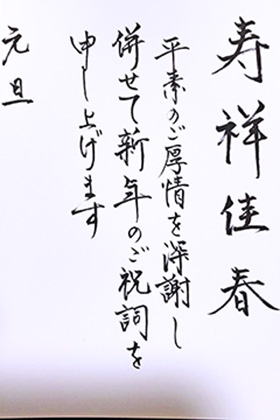 寿祥佳春
平素のご厚情を深謝し
併せて新年のご祝詞を
申し上げます
元旦